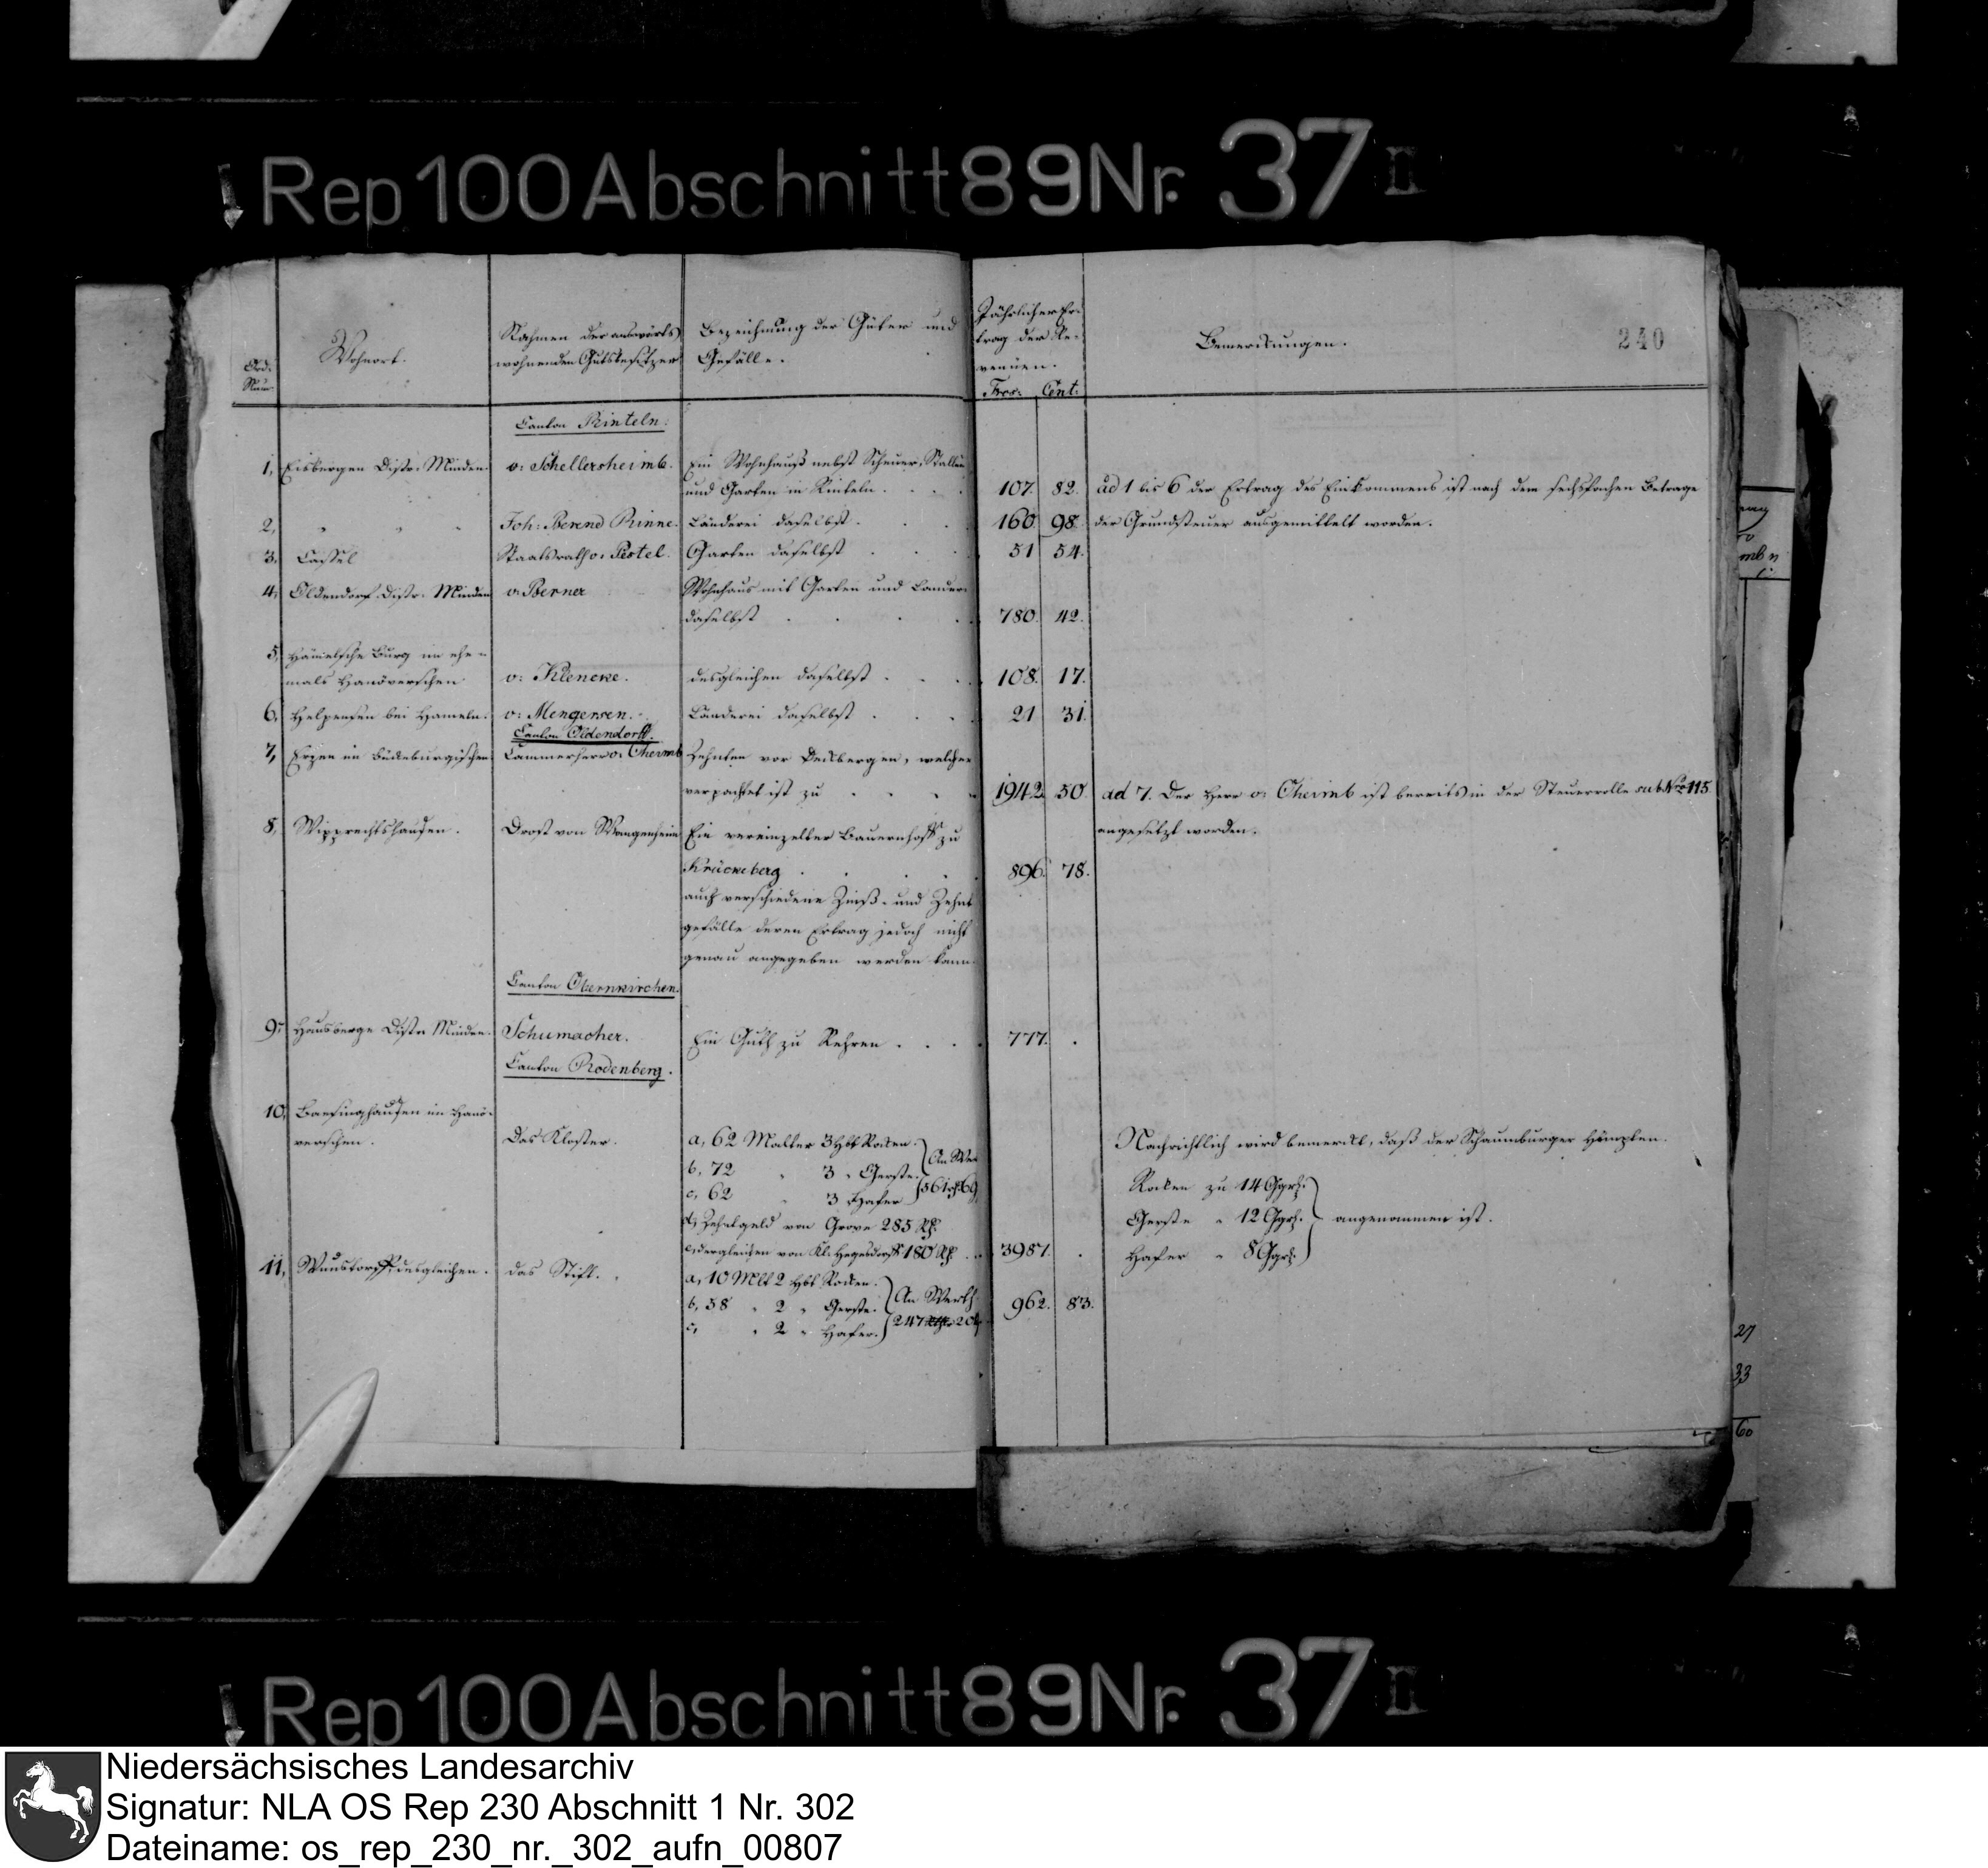 Rep 100 Abschnitt 89 Nr. 37 II
240
Ord. Num.
Wohnort.
Nahmen der auswärts
wohnenden Gutsbesitzer
Bezeichnung der Güter und
Gefälle.
Jährlicher Er-
trag der Re-
venüen.
Frcs: Cent:
Bemerkungen.
Canton Rinteln.
1, Eisbergen Distr: Minden. v: Schellersheimb. Ein Wohnhauß nebst Scheuer, Stallung
und Garten in Rinteln. 107. 82. ad 1 bis 6 der Ertrag des Einkommens ist nach dem sechsfachen Betrage
2, " " " Joh: Berend Rinne. Länderei daselbst. 160 98. der Grundsteuer ausgemittelt worden.
3, Cassel Staatsrath v: Pestel. Garten daselbst 51 54.
4, Oldendorf Distr: Minden v: Berner Wohnhaus mit Garten und Länder:
daselbst 780. 42.
5, Hämelsche Burg im ehe-
mals Hanöverschen v: Klencke. desgleichen daselbst 108. 17.
6, Helpensen bei Hameln. v: Mengersen. Länderei daselbst 21 31.
Canton Oldendorff.
7, Erzen im Bückeburgischen Cammerherr v: Oheimb Zehnten vor Deckbergen, welcher
verpachtet ist zu 1942. 50. ad 7. Der Herr v: Oheimb ist bereits in der Steuerrolle sub No 115
angesetzt worden.
8, Wipprechtshausen. Drost von Wangenheim Ein vereinzelter Bauernhoff zu
Krückeberg 896. 78.
auch verschiedene Zinß- und Zehnt
gefälle deren Ertrag jedoch nicht
genau angegeben werden kann.
Canton Obernkirchen.
9, Hausberge Distr: Minden. Schumacher. Ein Guth zu Rehren 777. .
Canton Rodenberg.
10, Barsinghausen im Hanö-
verschen. Das Kloster. a, 62 Malter 3 Hbt Rocken. Nachrichtlich wird bemerkt, daß der Schaumburger Himpten.
b, 72 " 3 " Gerste. An Wer
c, 62 " 3 Hafer 561 69
Rocken zu 14 Ggr.
d, Zehntgeld von Grove 285 Rt.
Gerste " 12 Ggr. angenommen ist.
e, dergleichen von Kl: Hegesdorff 180 Rt. 3987. .
Hafer " 8 Ggr.
11, Wunstorff, desgleichen. das Stift. a, 10 Mlt 2 Hbt Rocken.
b, 58 " 2 " Gerste. An Werth 962. 83.
c, " 2 " Hafer. 247 20
27
33
60
Rep 100 Abschnitt 89 Nr. 37 II
Niedersächsisches Landesarchiv
Signatur: NLA OS Rep 230 Abschnitt 1 Nr. 302
Dateiname: os_rep_230_nr._302_aufn_00807